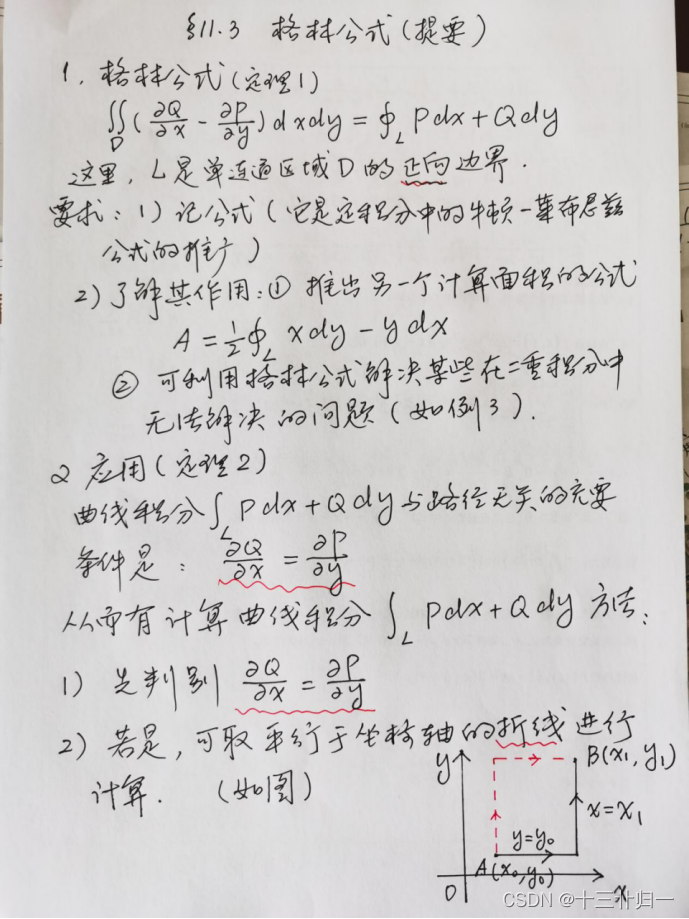 §11.3 格林公式(提要)
1. 格林公式(定理1)
∬_D (∂Q/∂x - ∂P/∂y) dxdy = ∮_L Pdx + Qdy
这里, L是单连通区域D的正向边界.
要求: 1) 记公式 (它是定积分中的牛顿-莱布尼兹
公式的推广)
2) 了解其作用: ① 推出另一个计算面积的公式
A = 1/2 ∮_L xdy - ydx
② 可利用格林公式解决某些在二重积分中
无法解决的问题 (如例3).
2 应用(定理2)
曲线积分 ∫_L Pdx + Qdy 与路径无关的充要
条件是: ∂Q/∂x = ∂P/∂y
从而有计算曲线积分 ∫_L Pdx + Qdy 方法:
1) 先判别 ∂Q/∂x = ∂P/∂y
2) 若是, 可取平行于坐标轴的折线进行
计算. (如图)
y
B(x₁, y₁)
x=x₁
y=y₀
A(x₀,y₀)
0
x
CSDN @十三补归一